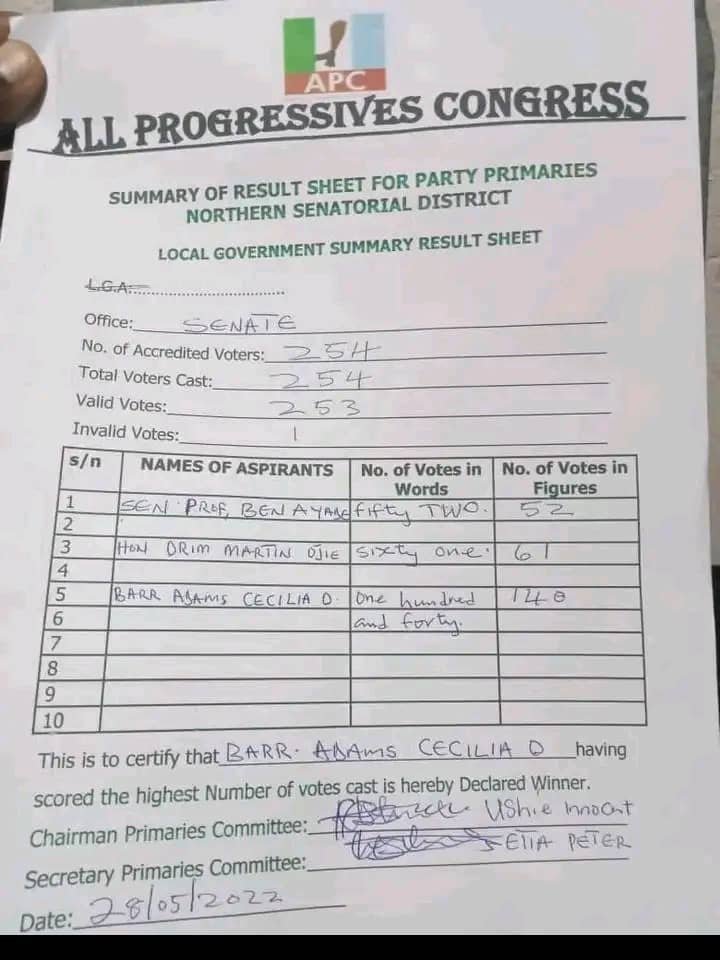 APC
ALL PROGRESSIVES CONGRESS
SUMMARY OF RESULT SHEET FOR PARTY PRIMARIES
NORTHERN SENATORIAL DISTRICT
LOCAL GOVERNMENT SUMMARY RESULT SHEET
L.G.A:
Office: SENATE
No. of Accredited Voters: 254
Total Voters Cast: 254
Valid Votes: 253
Invalid Votes: 1
s/n NAMES OF ASPIRANTS No. of Votes in Words No. of Votes in Figures
1 SEN PROF, BEN AYADE fifty TWO. 52
2
3 HON DRIM MARTIN OJIE sixty one. 61
4
5 BARR ADAMS CECILIA O. One hundred 140
6 and forty.
7
8
9
10
This is to certify that BARR. ADAMS CECILIA O having
scored the highest Number of votes cast is hereby Declared Winner.
Chairman Primaries Committee: Ushie Innocent
Secretary Primaries Committee: ETTA PETER
Date: 28/05/2022